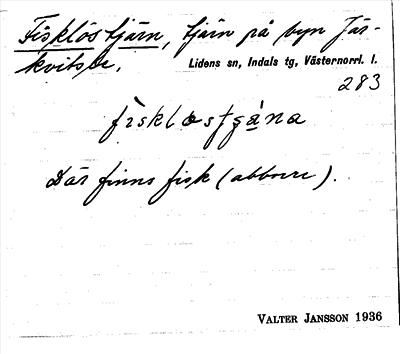 Fisklöstjärn, tjärn på byn Jär-
kvitsle.
Lidens sn, Indals tg, Västernorrl. l.
283
fìsklæsţşa̱na
Där finns fisk (abborre).
VALTER JANSSON 1936